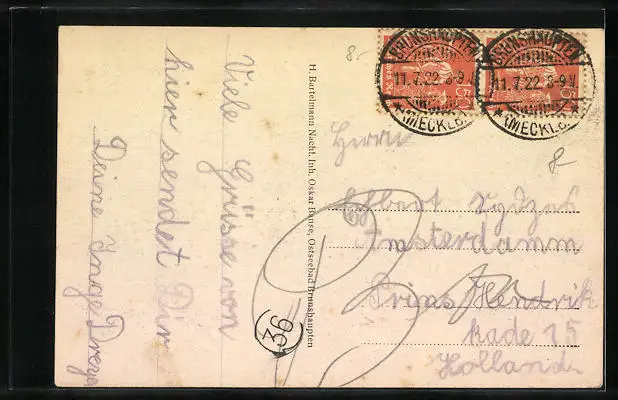 Viele Grüsse von
hier sendet Dir
Deine Inge
H. Bartelmann Nachf. Inh. Oskar Banse, Ostseebad Brunshaupten
8.-
BRUNSHAUPTEN
11.7.22.8-9V.
*(MECKLB.)
BRUNSHAUPTEN
11.7.22.8-9V.
*(MECKLB.)
150
8-
Herrn
Amsterdamm
Prins Hendrik
kade 25
Holland
36